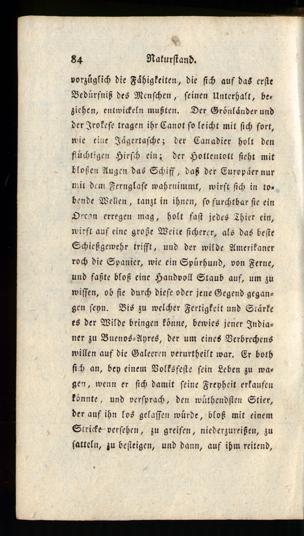 84 Naturstand.
vorzüglich die Fähigkeiten, die sich auf das erste
Bedürfniß des Menschen, seinen Unterhalt, be-
ziehen, entwickeln mußten. Der Grönländer und
der Irokese tragen ihr Canot so leicht mit sich fort,
wie eine Jägertasche; der Canadier holt den
flüchtigen Hirsch ein; der Hottentott sieht mit
bloßen Augen das Schiff, daß der Europäer nur
mit dem Fernglase wahrnimmt, wirft sich in to-
bende Wellen, tanzt in ihnen, so furchtbar sie ein
Orcan erregen mag, holt fast jedes Thier ein,
wirft auf eine große Weite sicherer, als das beste
Schießgewehr trifft, und der wilde Amerikaner
roch die Spanier, wie ein Spürhund, von Ferne,
und faßte bloß eine Handvoll Staub auf, um zu
wissen, ob sie durch diese oder jene Gegend gegan-
gen seyn. Bis zu welcher Fertigkeit und Stärke
es der Wilde bringen könne, bewies jener India-
ner zu Buenos-Ayres, der um eines Verbrechens
willen auf die Galeeren verurtheilt war. Er both
sich an, bey einem Volksfeste sein Leben zu wa-
gen, wenn er sich damit seine Freyheit erkaufen
könnte, und versprach, den wüthendsten Stier,
der auf ihn los gelassen würde, bloß mit einem
Stricke versehen, zu greifen, niederzureißen, zu
satteln, zu besteigen, und dann, auf ihm reitend,